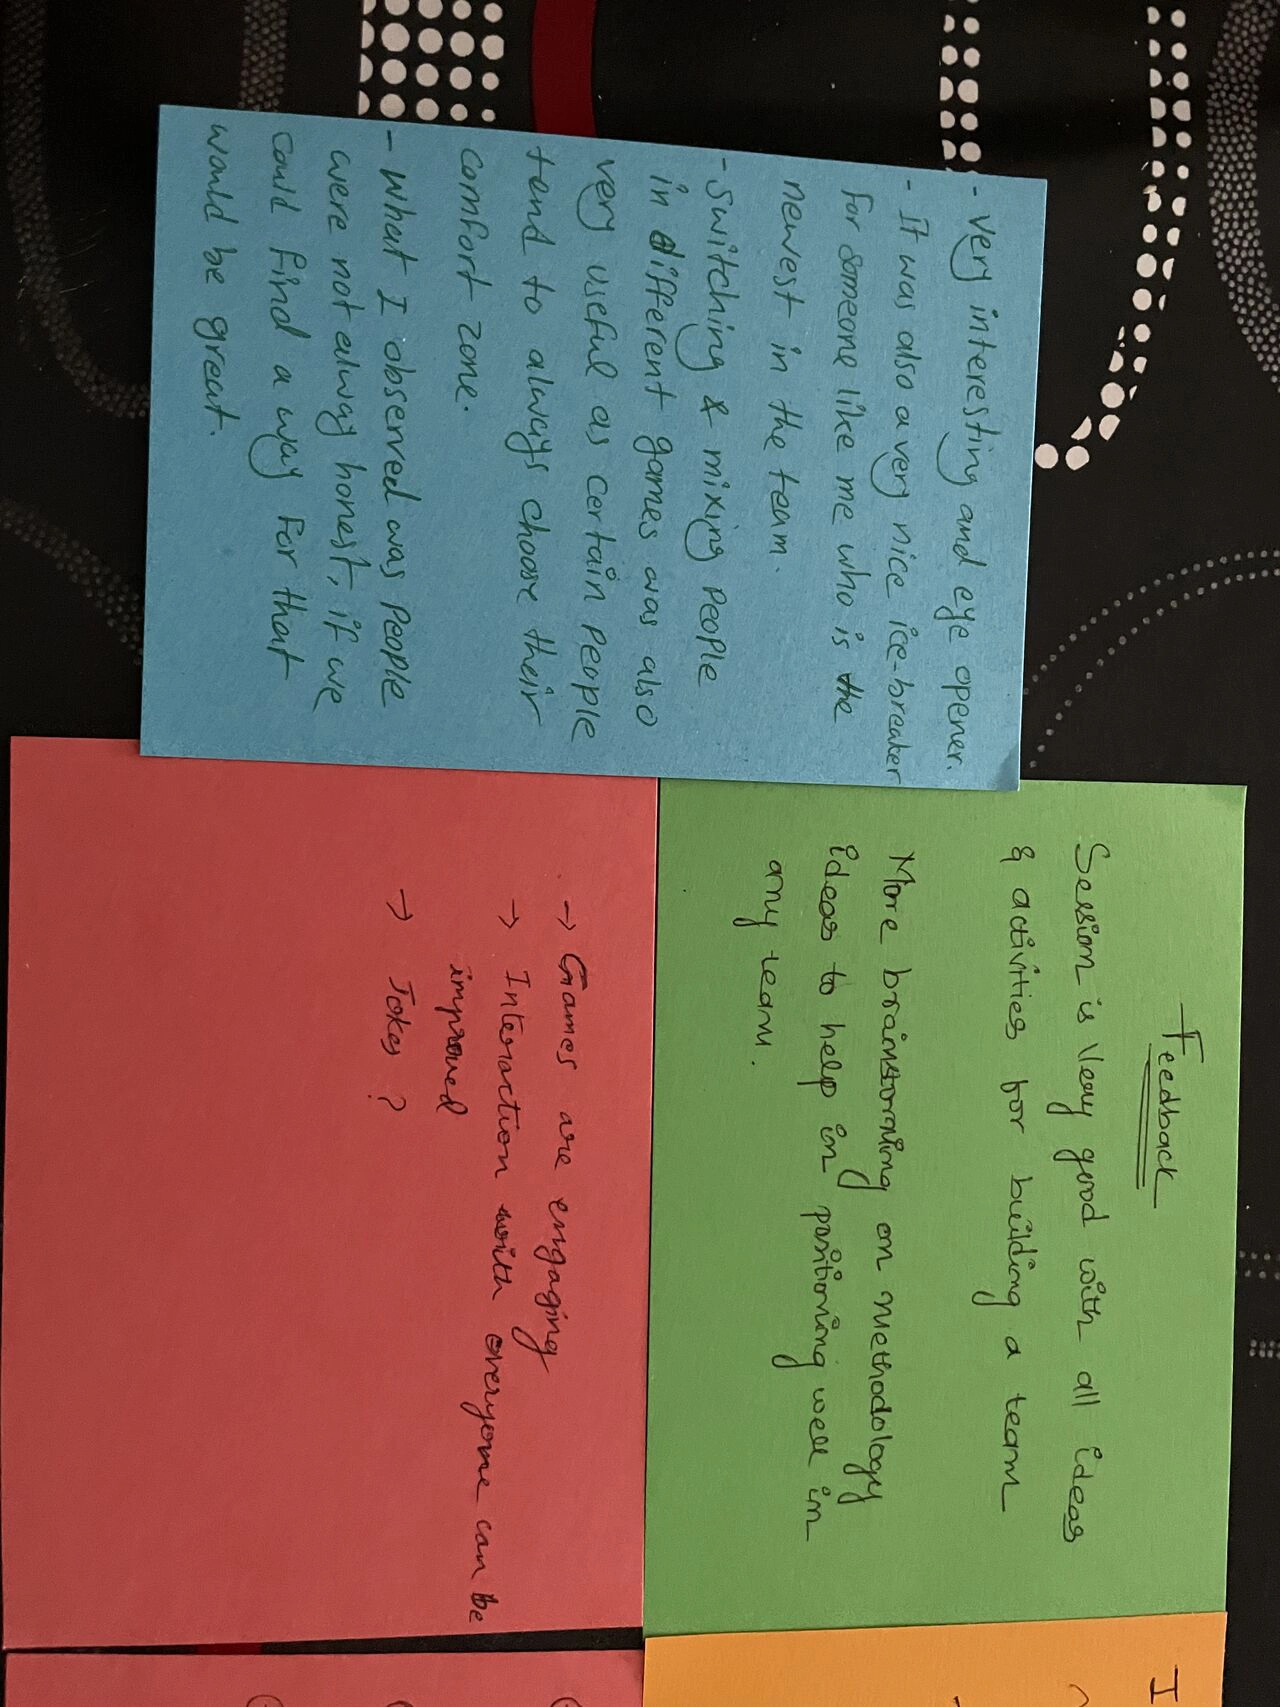 - very interesting and eye opener.
- It was also a very nice ice-breaker
for someone like me who is the
newest in the team.
- Switching & mixing people
in different games was also
very useful as certain people
tend to always choose their
comfort zone.
- What I observed was people
were not alwys honest, if we
could find a way for that
would be great.
Feedback
Session is Very good with all ideas
& activities for building a team
More brainstorning on methodology
ideas to help in positioning well in
any team.
→ Games are engaging
→ Interaction with everyone can be
improved
→ Jokes ?
I